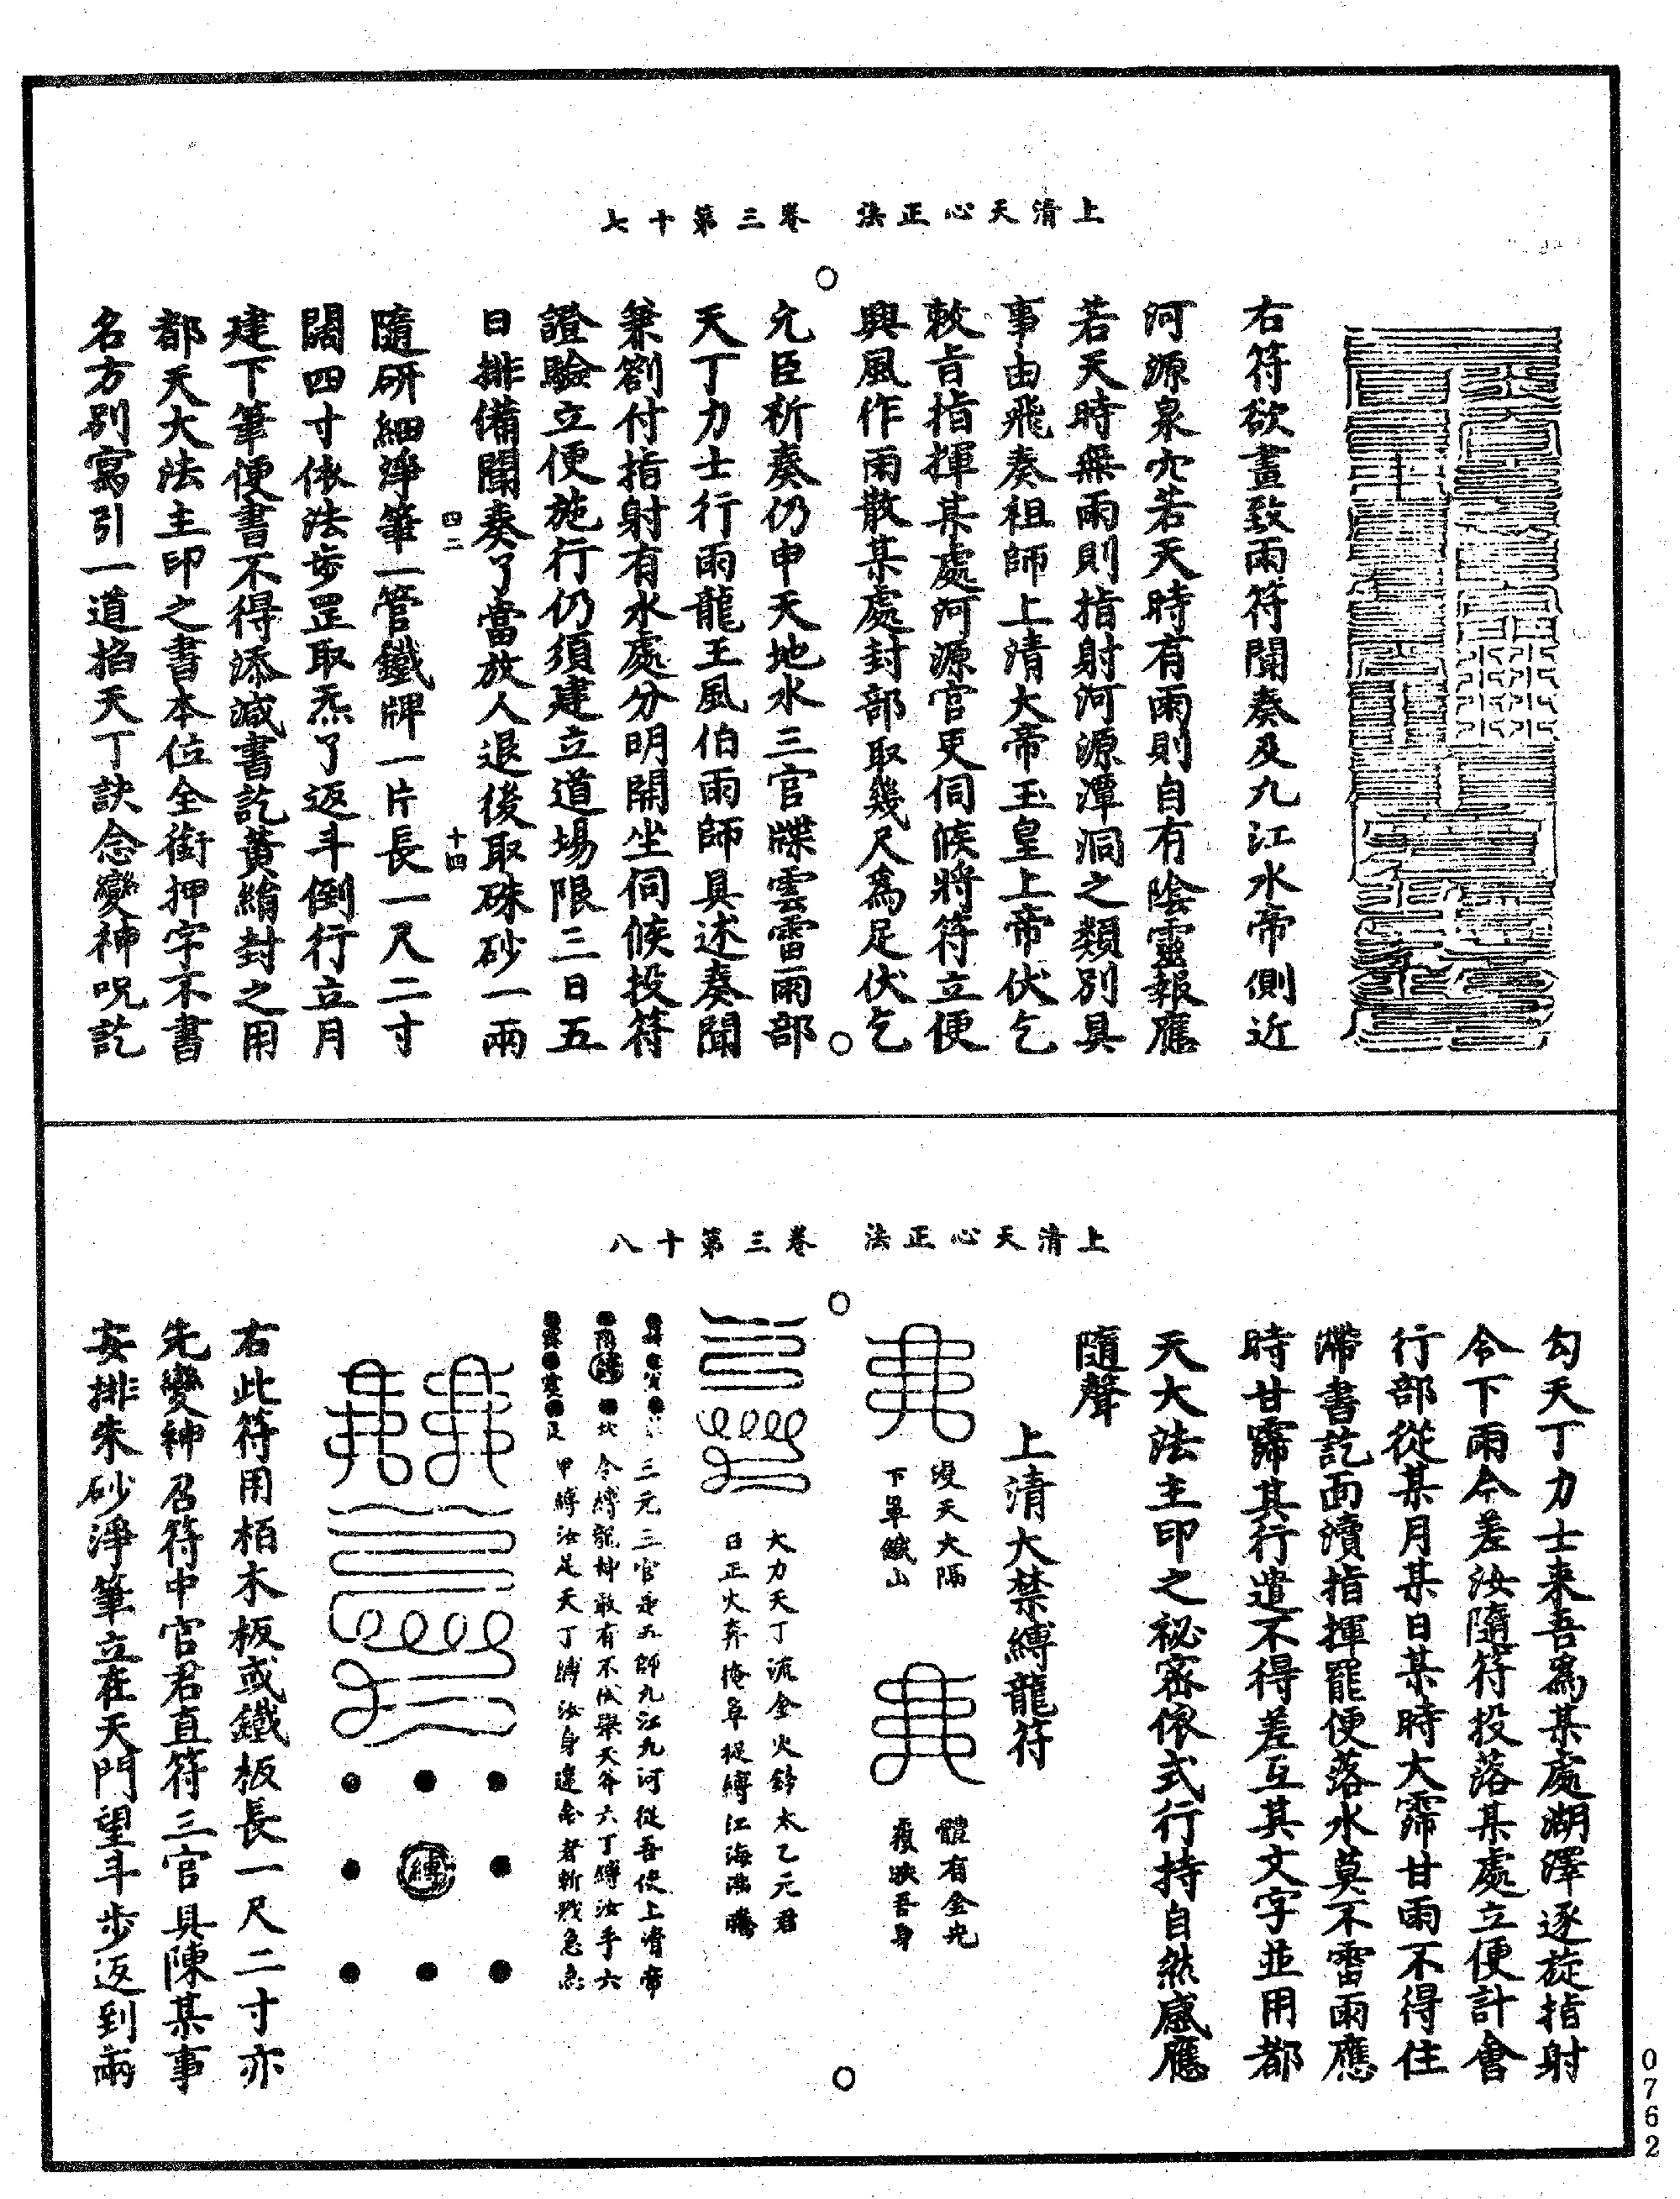 上清天心正法　卷三第十七
右符欲畫致雨符聞奏及九江水帝側近
河源泉穴若天時有雨則自有陰靈報應
若天時無雨則指射河源潭洞之類別具
事由飛奏祖師上清大帝玉皇上帝伏乞
敕旨指揮某處河源官吏伺候將符立便
興風作雨散某處封部取幾尺為足伏乞
允臣祈奏仍申天地水三官牒雲雷雨部
天丁力士行雨龍王風伯雨師具述奏聞
兼劄付指射有水處分明開坐伺候投符
證驗立便施行仍須建立道場限三日五
日排備聞奏了當放人退後取硃砂一兩
四二　十四
隨研細淨筆一管鐵牌一片長一尺二寸
闊四寸依法步罡取炁了返斗倒行立月
建下筆便書不得添減書訖黃絹封之用
都天大法主印之書本位全銜押字不書
名方別寫引一道掐天丁訣念變神呪訖
上清天心正法　卷三第十八
勾天丁力士來吾為某處湖澤逐旋指射
令下雨今差汝隨符投落某處立便計會
行部從某月某日某時大霈甘雨不得住
滯書訖面瀆指揮罷便落水莫不雷雨應
時甘霈其行遣不得差互其文字並用都
天大法主印之祕密依式行持自然感應
隨聲
上清大禁縛龍符
漫天大隔
下罩鐵山
體有金光
覆映吾身
大力天丁流金火鈴太乙元君
日正火奔掩阜捉縛江海
三元三官
五師九江九河從吾使上清帝
令縛龍神敢有不伏與天斧六丁縛汝手六
甲縛汝足天丁縛汝身違令者斬戮急急
縛
右此符用柏木板或鐵板長一尺二寸亦
先變神召符中官君直符三官具陳某事
安排朱砂淨筆立在天門望斗步返到兩
0762